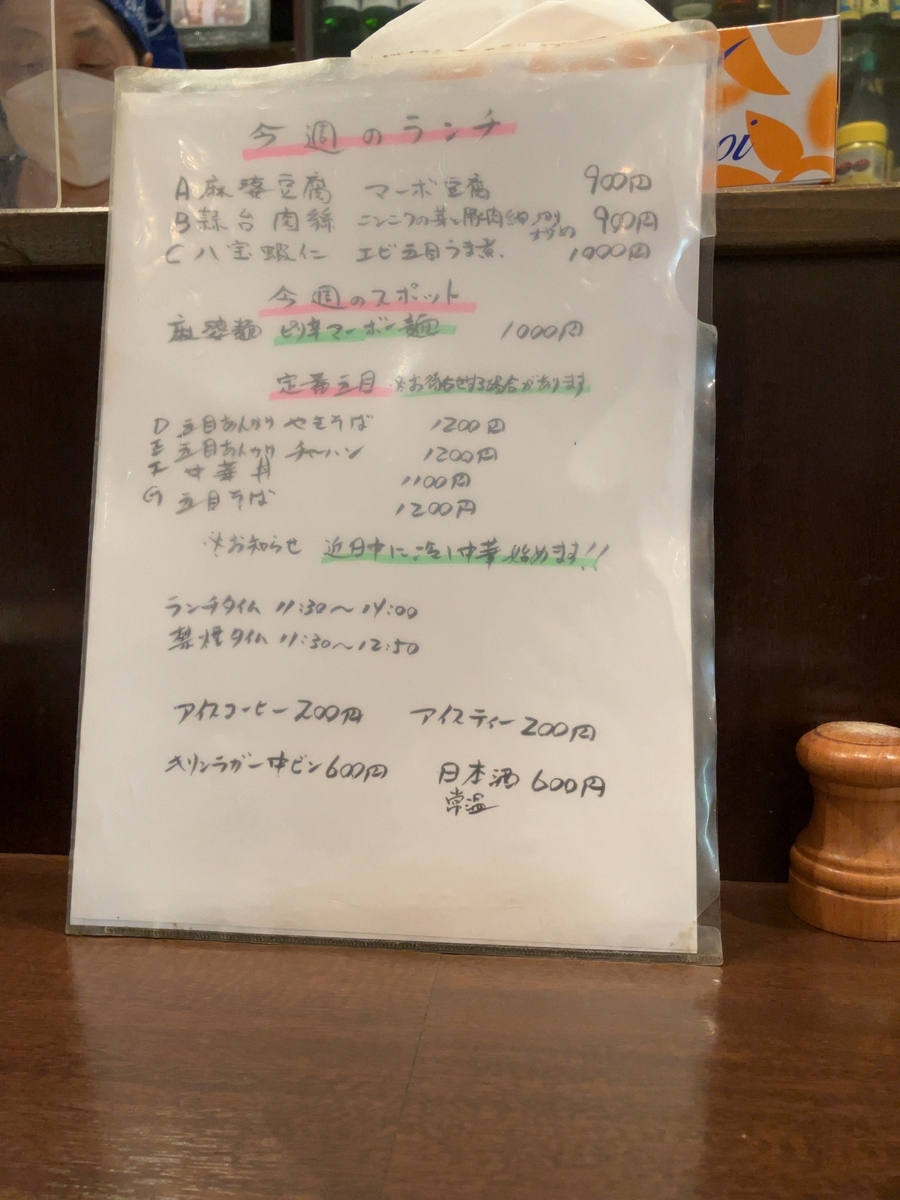 今週のランチ
A 麻婆豆腐 マーボ豆腐 900円
B 蒜台肉絲 ニンニクの芽と豚肉細切り炒め 900円
C 八宝蝦仁 エビ五目うま煮. 1000円
今週のスポット
麻婆麺 ピリ辛マーボー麺 1000円
定番五目 ※お待たせする場合があります
D 五目あんかけ やきそば 1200円
E 五目あんかけ チャーハン 1200円
F 中華丼 1100円
G 五目そば 1200円
※お知らせ 近日中に冷し中華始めます!!
ランチタイム 11:30～14:00
禁煙タイム 11:30～12:50
アイスコーヒー 200円 アイスティー 200円
キリンラガー中ビン 600円 日本酒 600円
常温